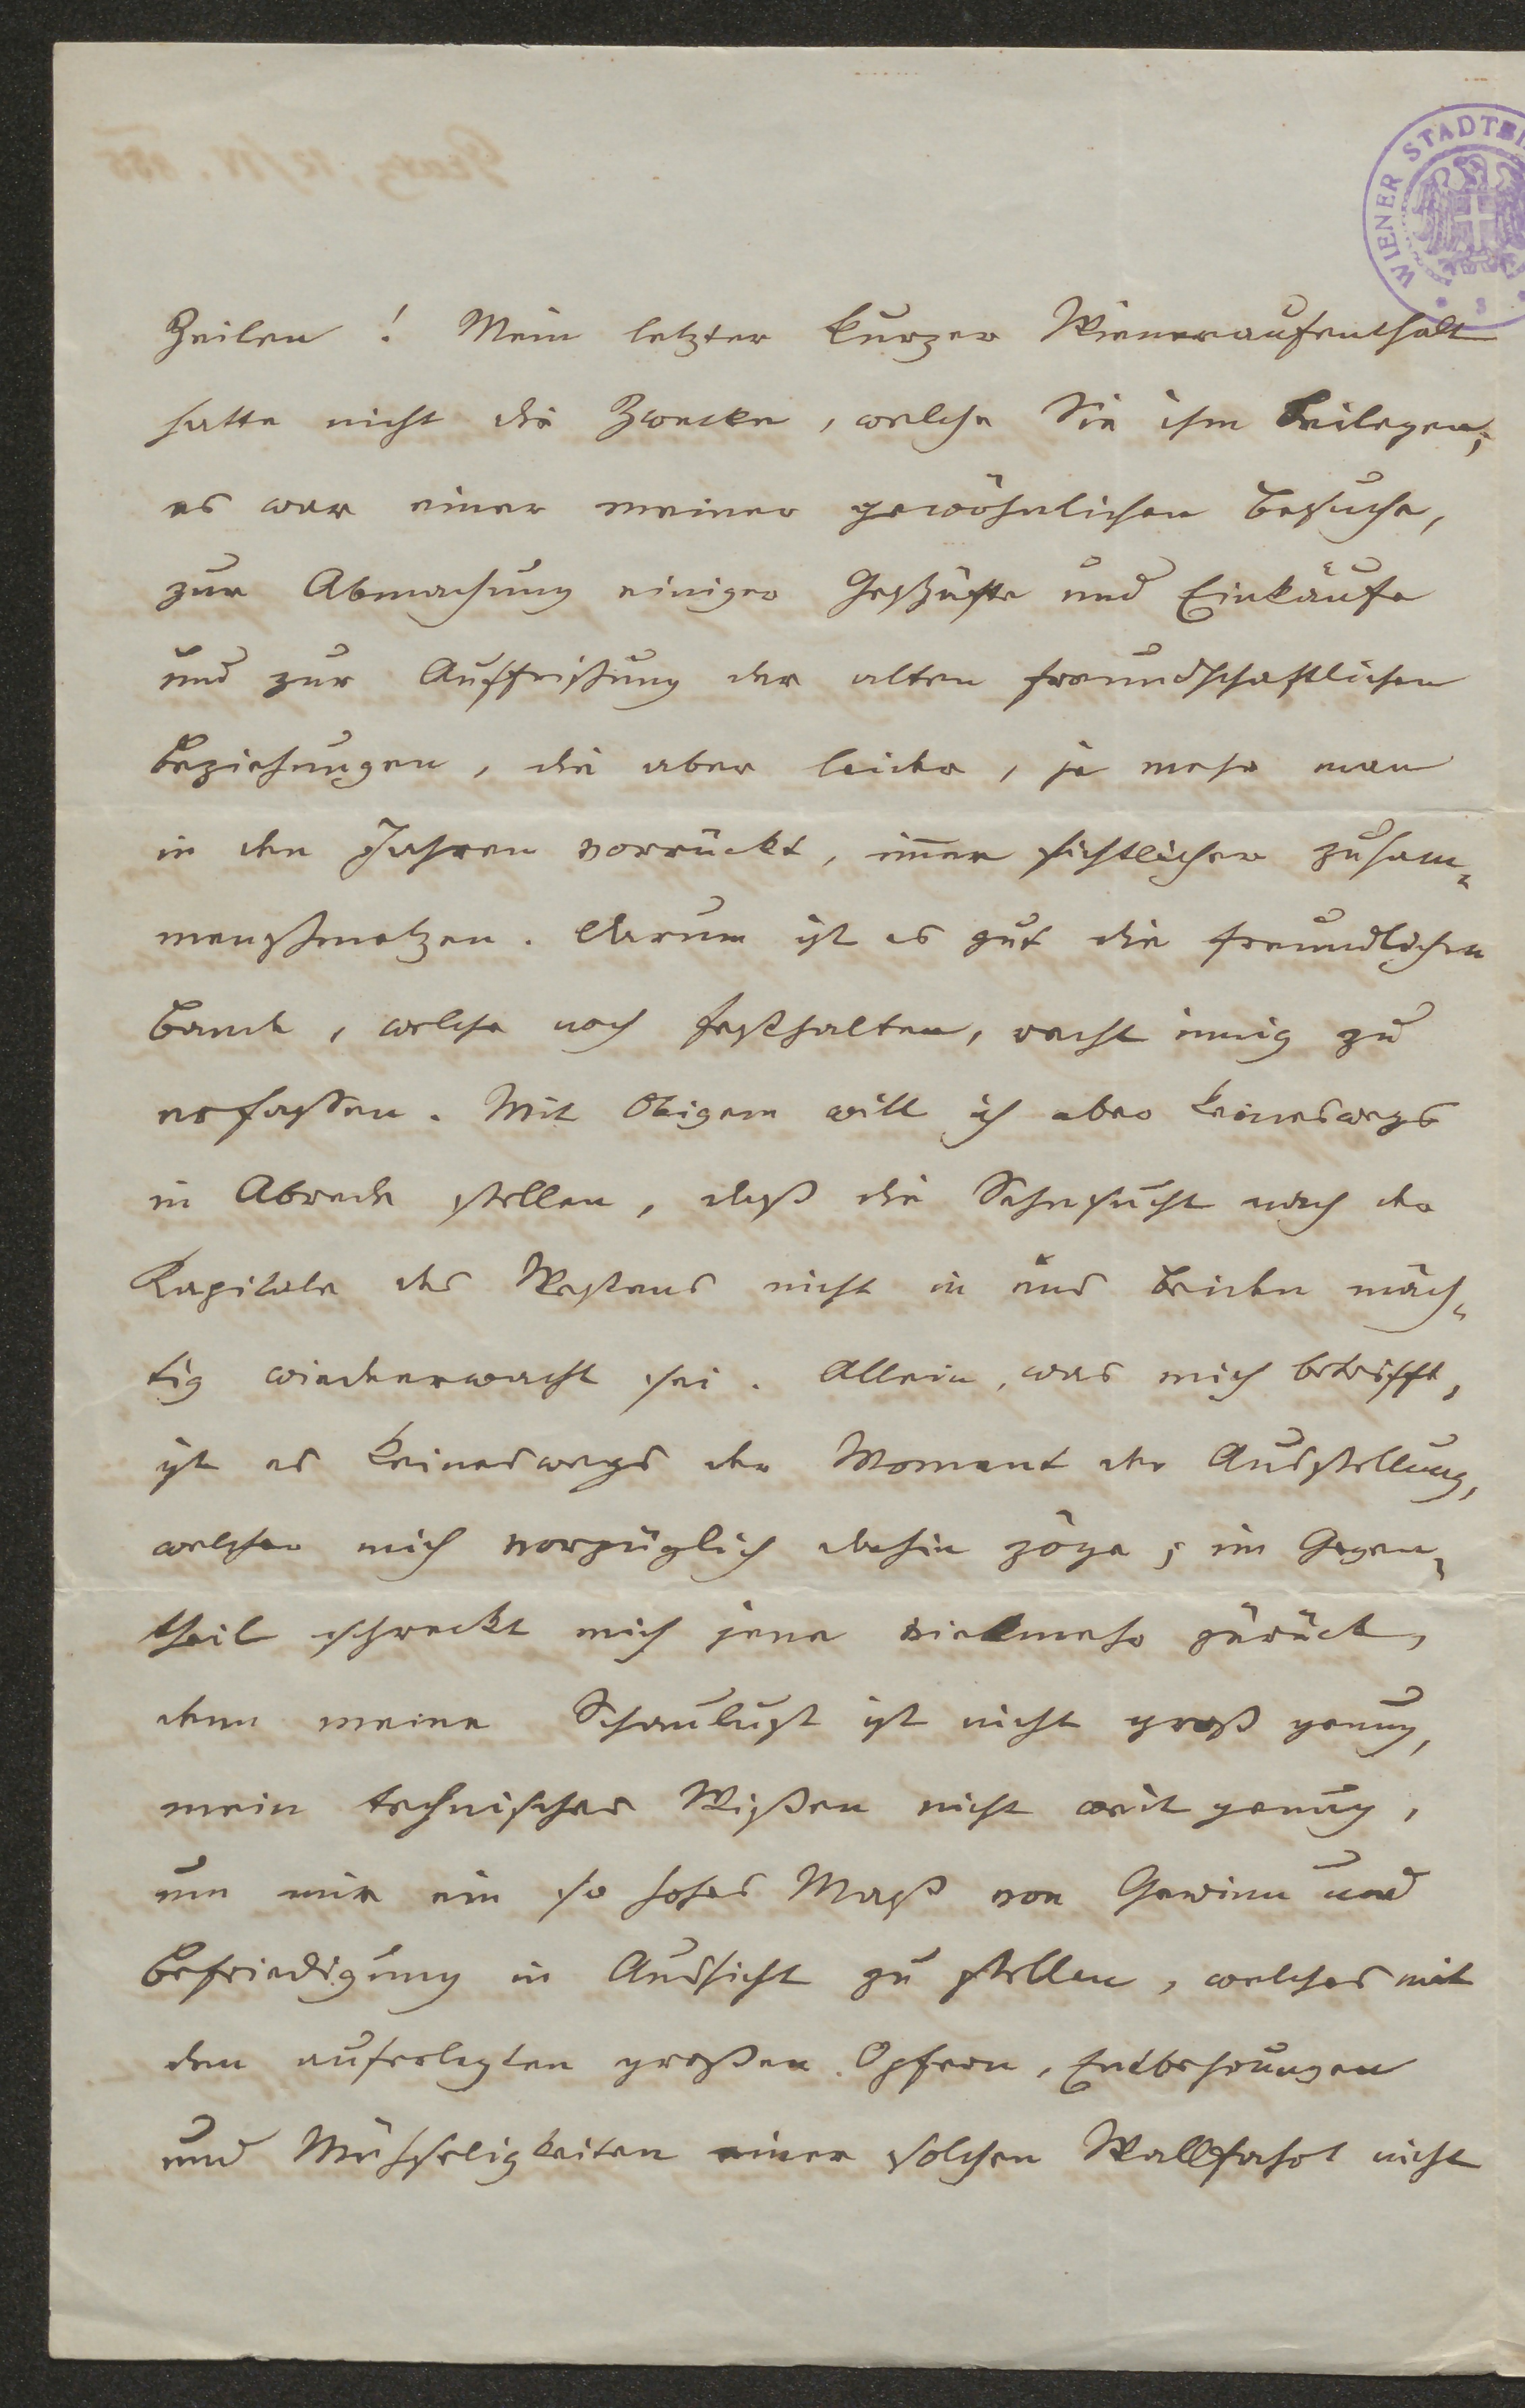 WIENER STADTBI
Zeilen! Mein letzter kurzer Wieneraufenthalt
hatte nicht die Zwecke, welche Sie ihm beilegen;
es war einer meiner gewöhnlichen Besuche,
zur Abmachung einiger Geschäfte und Einkäufe
und zur Auffrischung der alten freundschaftlichen
Beziehungen, die aber leider, je mehr man
in den Jahren vorrückt, im̅er sichtlicher zusam-
menschmelzen. Darum ist es gut die freundlichen
Bande, welche noch festhalten, recht innig zu
erfassen. Mit Obigem will ich aber keineswegs
in Abrede stellen, daß die Sehnsucht nach der
Kapitale des Westens nicht in uns beiden mäch-
tig wiedererwacht sei. Allein, was mich betrifft,
ist es keineswegs der Moment der Ausstellung,
welcher mich vorzüglich dahin zöge; im Gegen-
theil schreckt mich jene vielmehr zurück,
denn meine Schaulust ist nicht groß genug,
mein technisches Wißen nicht weit genug,
um mir ein so hohes Maß von Gewinn und
Befriedigung in Aussicht zu stellen, welches mit
den auferlegten großen Opfern, Entbehrungen
und Mühseligkeiten einer solchen Wallfahrt nicht